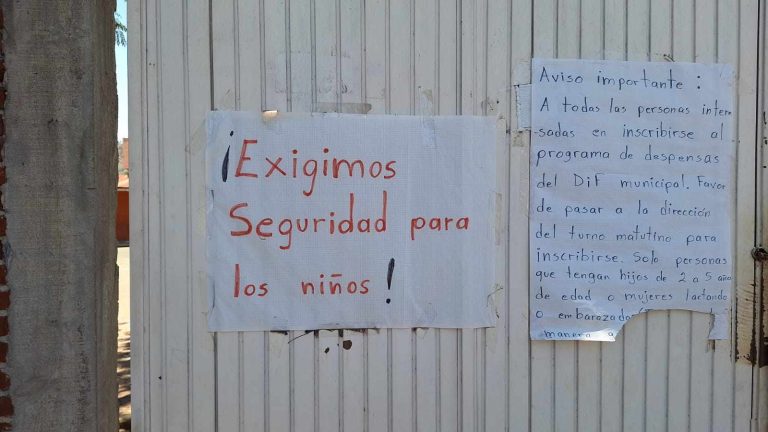 ¡Exigimos
Seguridad para
los niños!
Aviso importante:
A todas las personas inter
-sadas en inscribirse al
programa de despensas
del DIF municipal. Favor
de pasar a la dirección
del turno matutino para
inscribirse. Solo personas
que tengan hijos de 2 a 5 año
de edad o mujeres lactando
o embarazada
manera